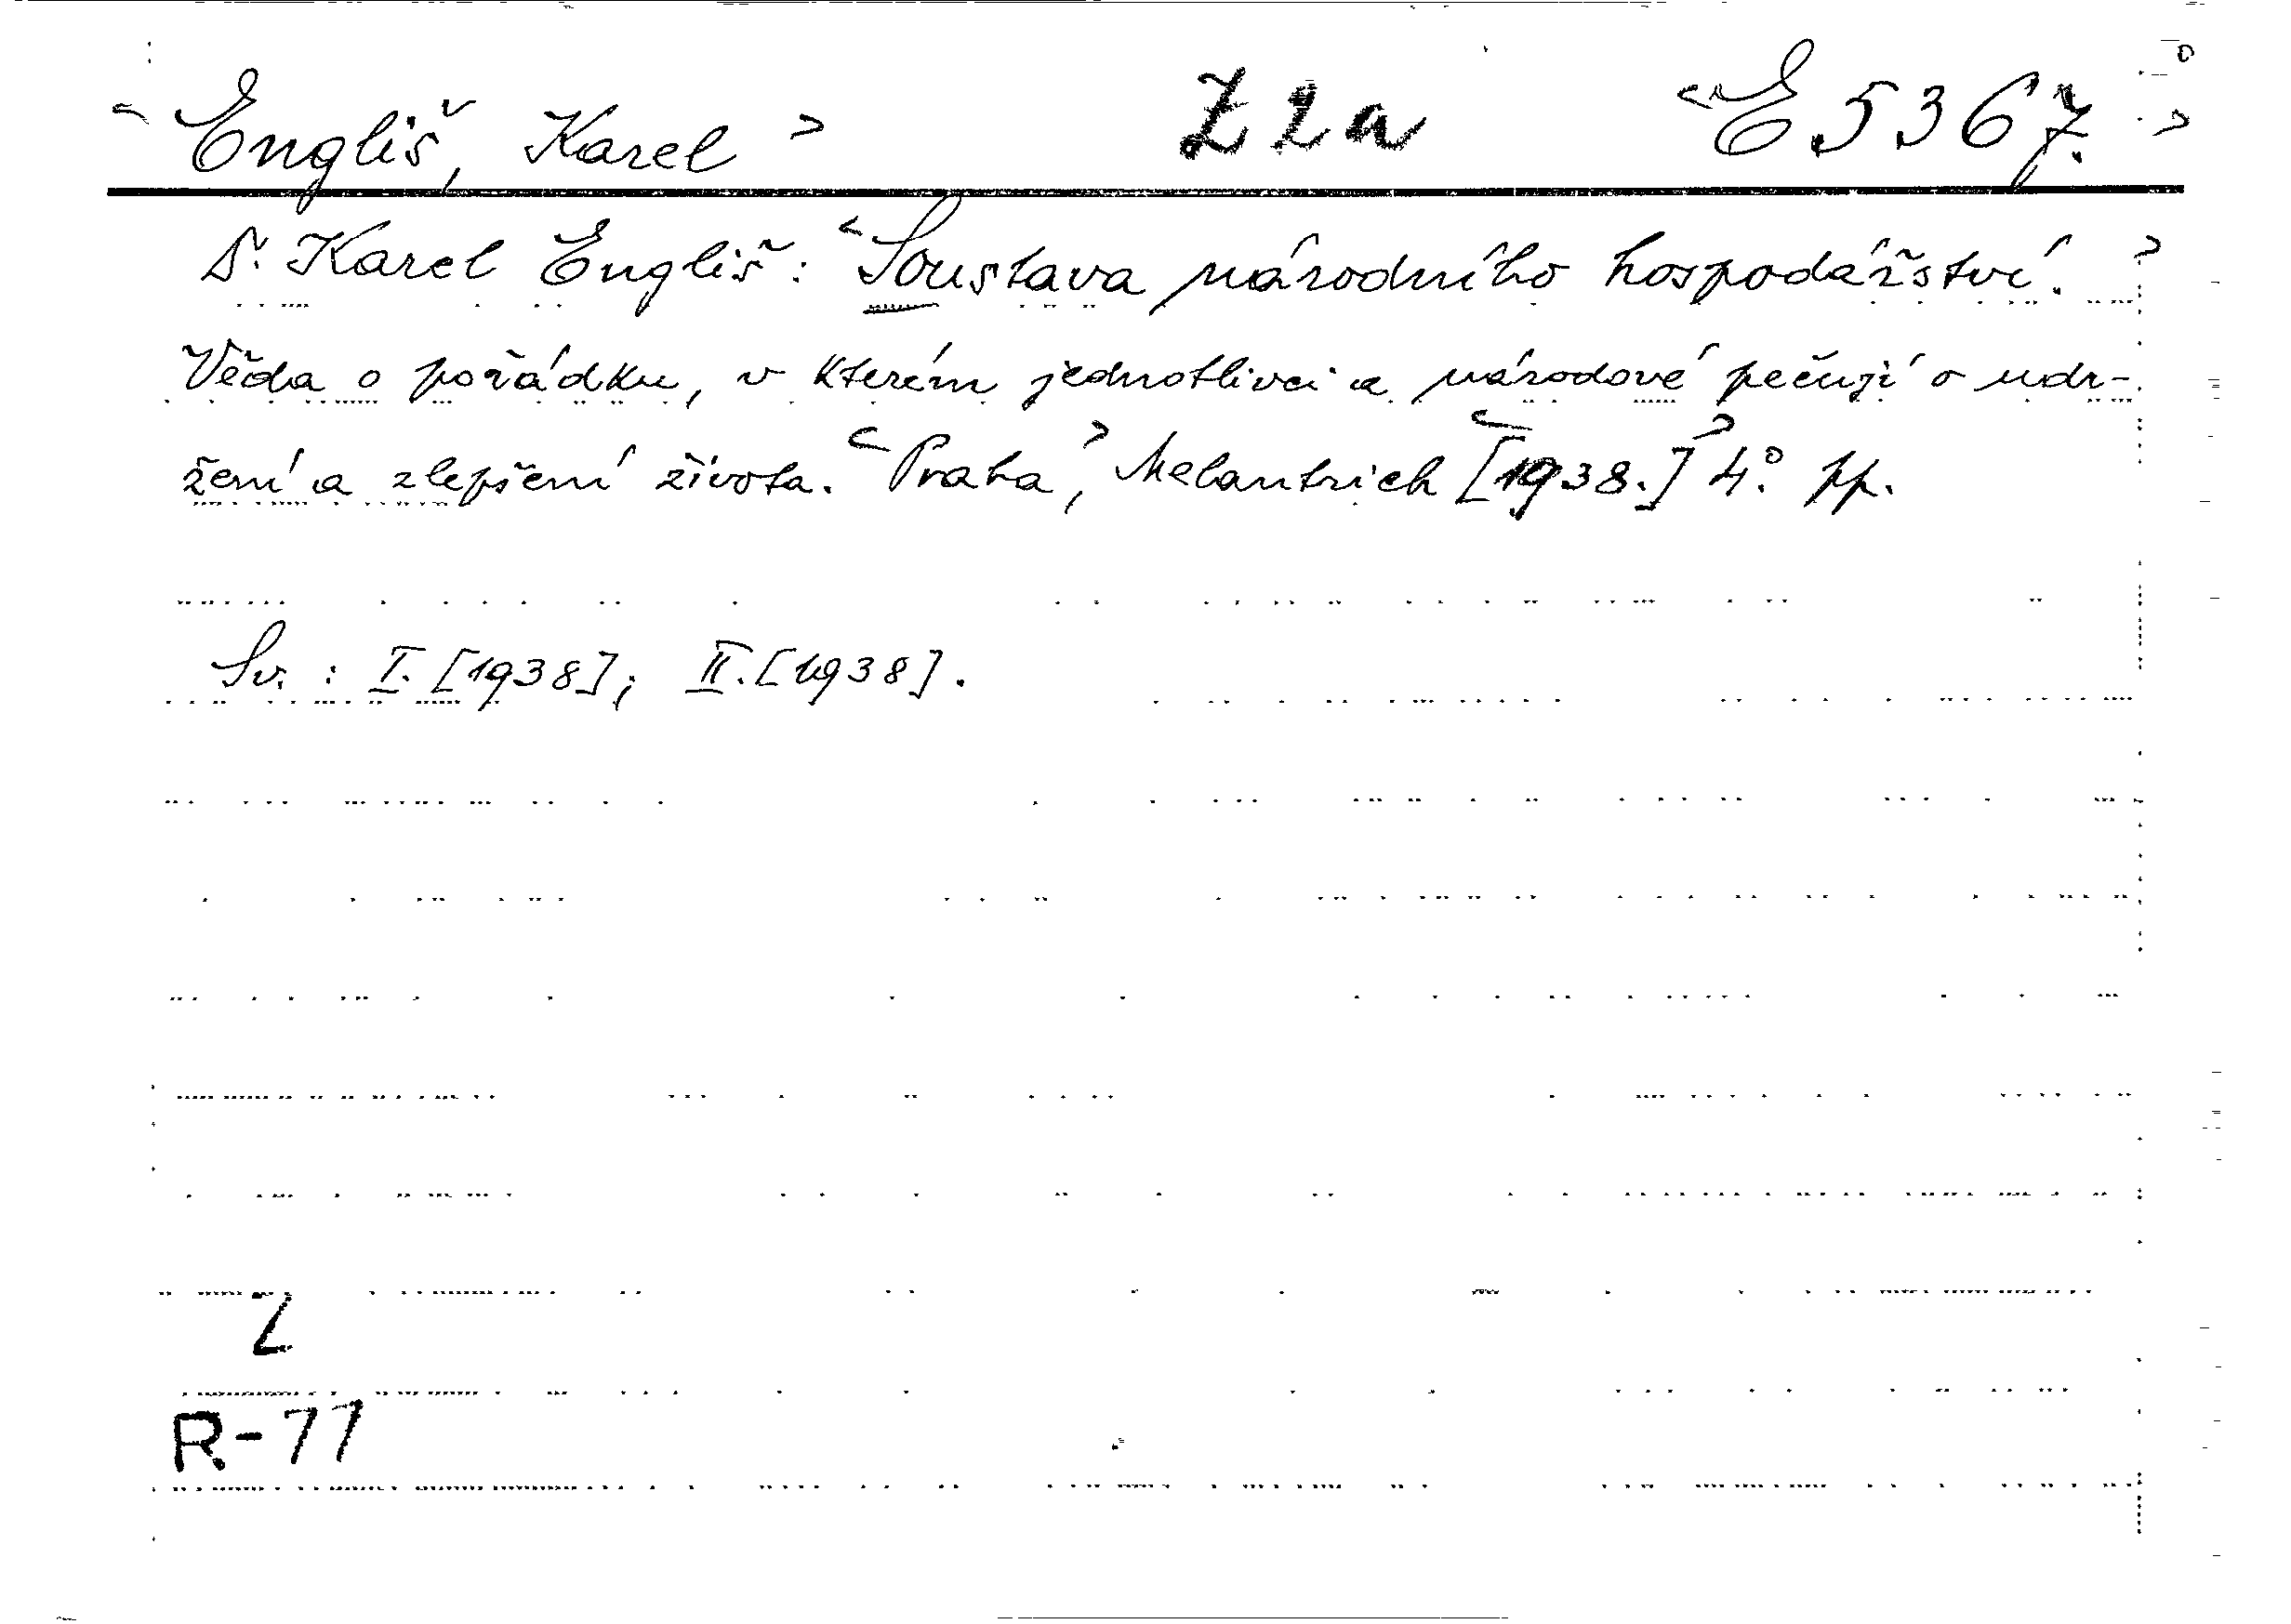 <Engliš, Karel> Z2a <E 5367.>
Dr. Karel Engliš: <Soustava národního hospodářství.>
Věda o pořádku, v kterém jednotlivci a národové pečují o udr-
žení a zlepšení života. <Praha,> Melantrich <[1938.]> 4° pp.
Sv. : I. [1938]; II. [1938].
Z
R-77